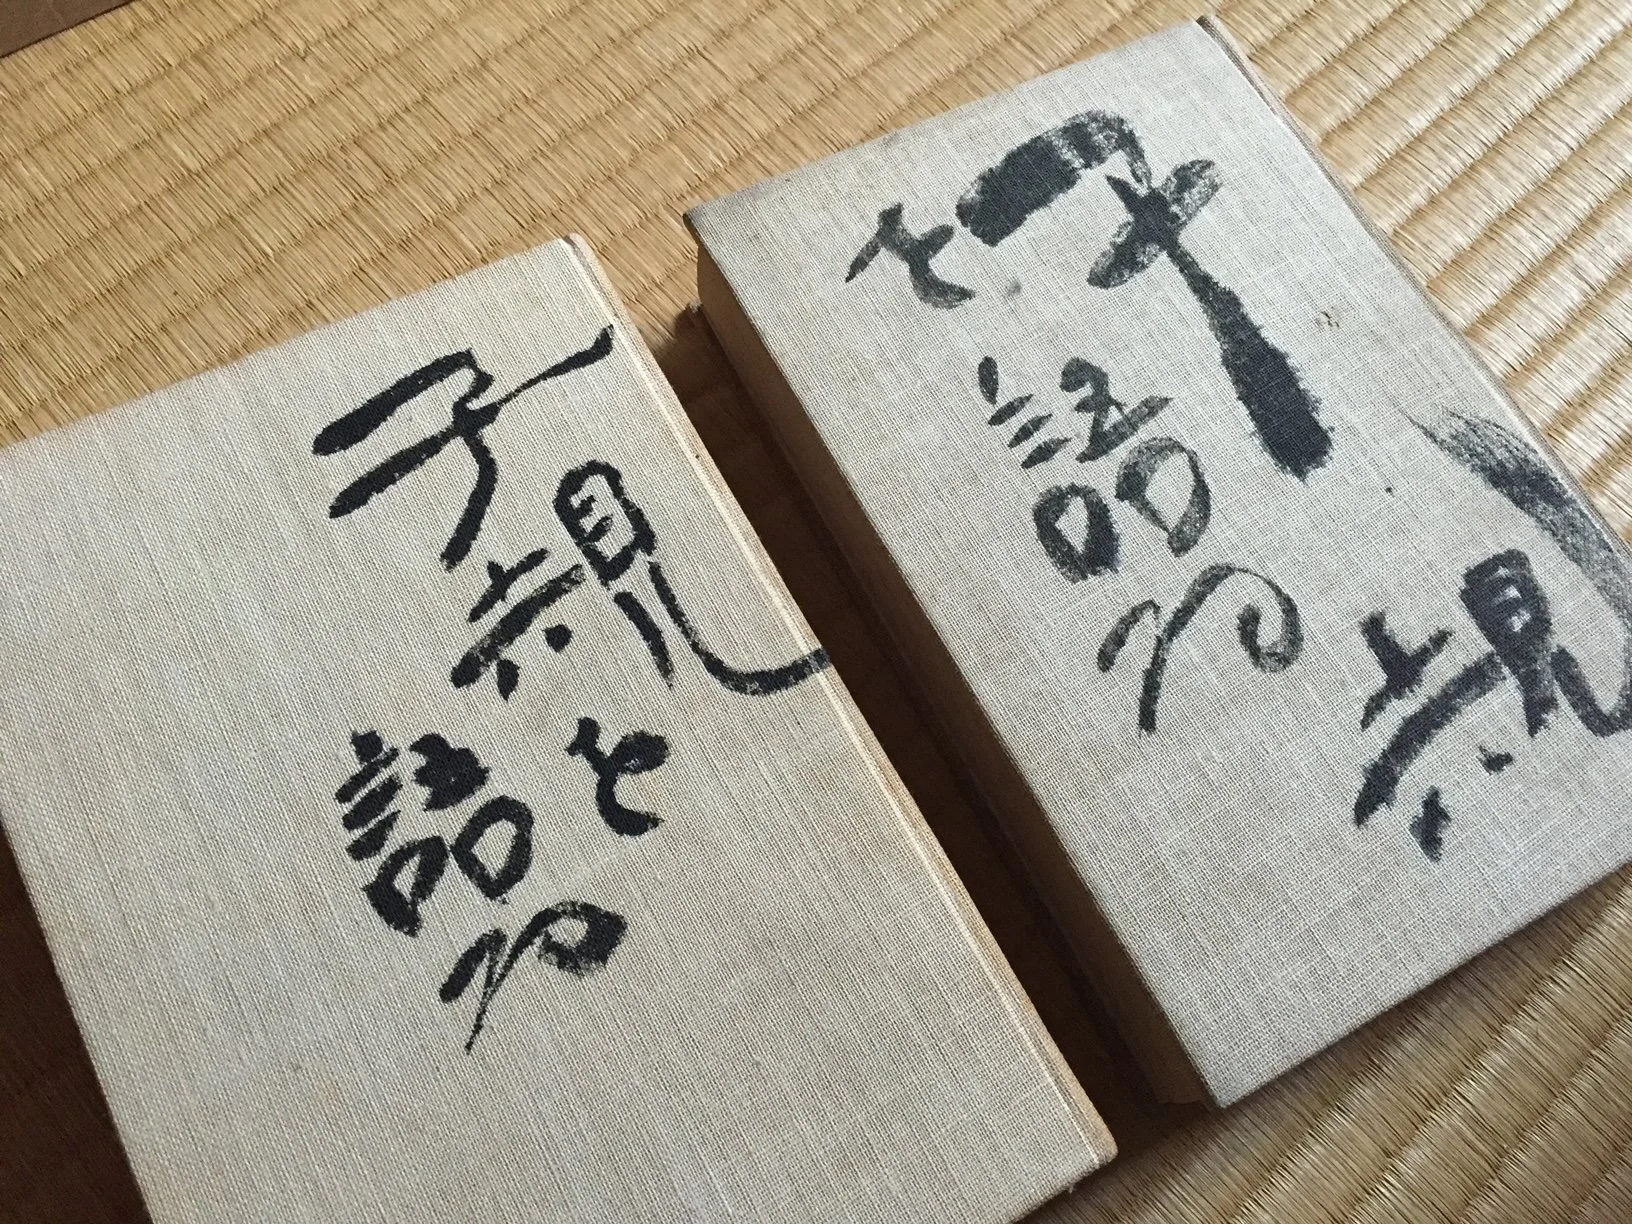 子規を
語る
子規
を語る